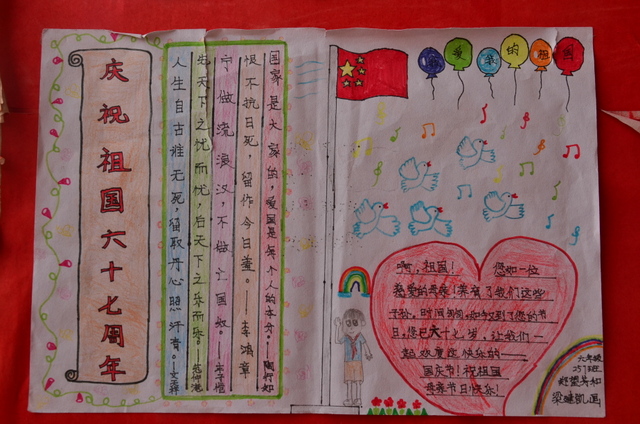 庆祝祖国六十七周年
国家是大家的,爱国是每个人的本分。——陶行知
恨不抗日死,留作今日羞。——李鸿章
宁做流浪汉,不做亡国奴。——丰子恺
先天下之忧而忧,后天下之乐而乐。——范仲淹
人生自古谁无死,留取丹心照汗青。——文天祥
爱亲的祖国
啊,祖国!您如一位
慈爱的母亲!养育了我们这些
子孙,时间匆匆,如今又到了您的节
日,您已六十七岁,让我们一
起欢度这快乐的——
国庆节!祝祖国
母亲节日快乐!
六年级
班
和
画